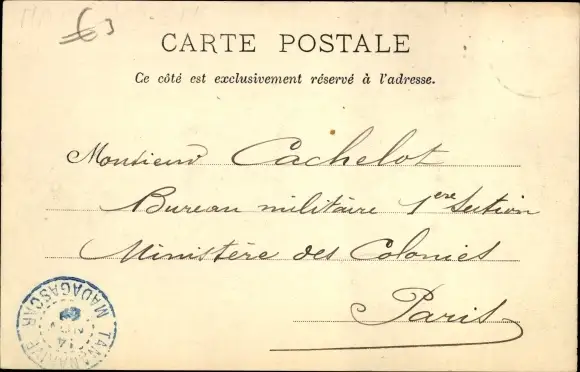 CARTE POSTALE
Ce côté est exclusivement réservé à l'adresse.
Monsieur Cachelot
Bureau militaire 1ère Section
Ministère des Colonies
Paris
TANANARIVE
MADAGASCAR